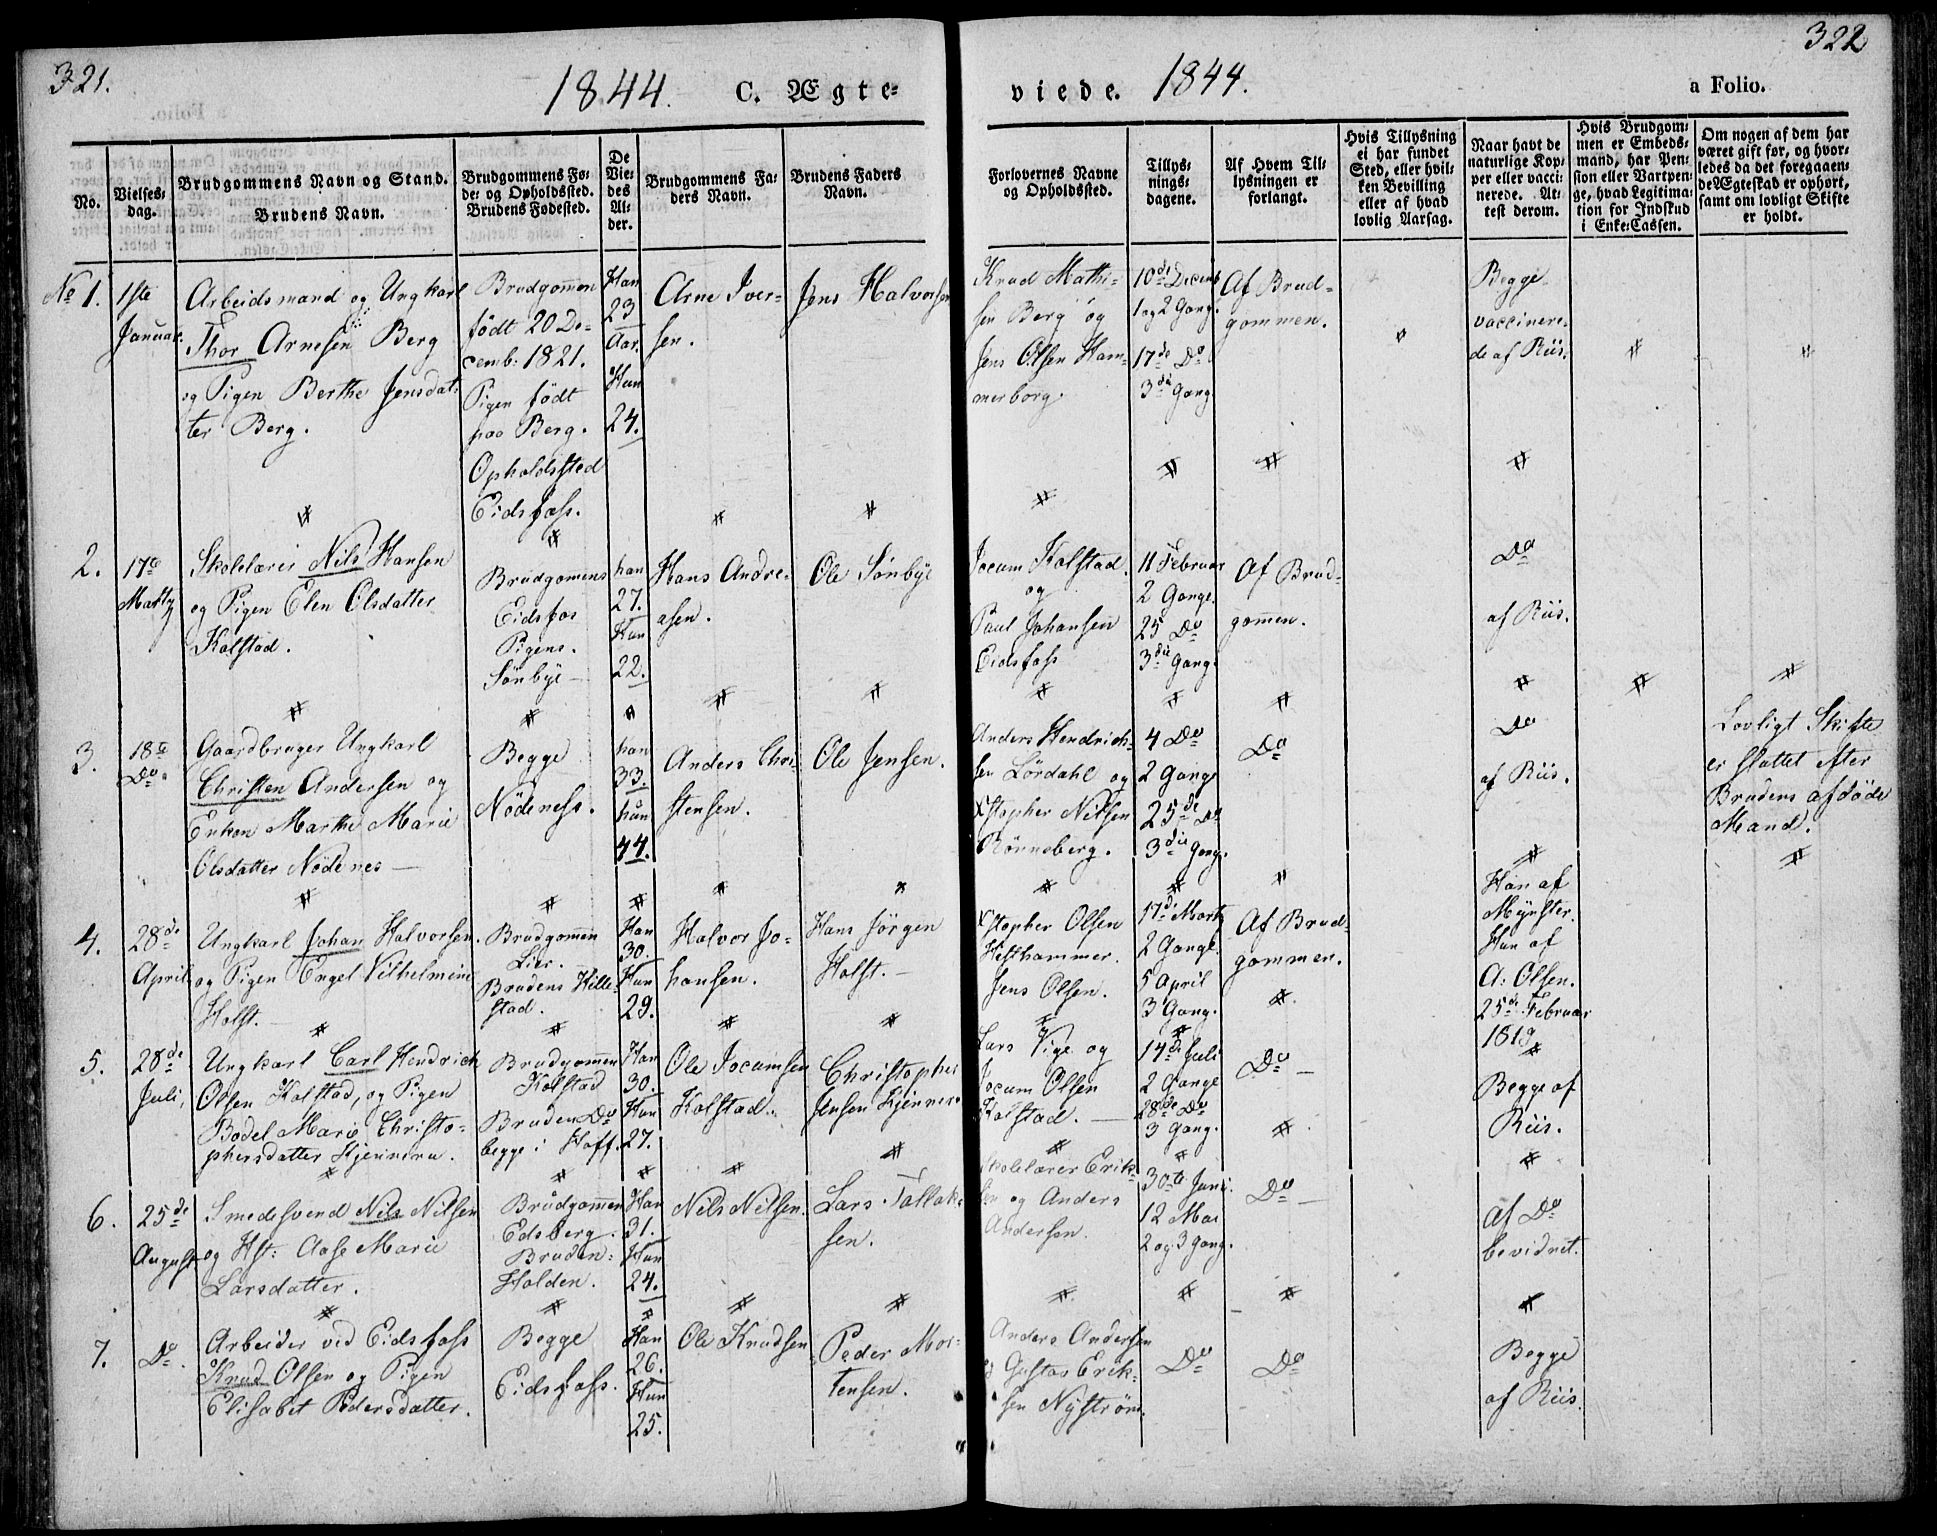 321.
1844.
C. Ægte-
viede.
1844.
a Folio.
322
No.
Vielses-
dag.
Brudgommens Navn og Stand.
Brudens Navn.
Brudgommens Fø-
de- og Opholdssted.
Brudens Fødested.
De
Vie-
des
Al-
der.
Brudgommens Fa-
ders Navn.
Brudens Faders
Navn.
Forlovernes Navne
og Opholdssted.
Tillys-
nings-
dagene.
Af Hvem Til-
lysningen er
forlangt.
Hvis Tillysning
ei har fundet
Sted, eller hvil-
ken Bevilling
eller af hvad
lovlig Aarsag.
Naar havt de
naturlige Kop-
per eller vacci-
nerede. At-
test derom.
Hvis Brudgom-
men er Embeds-
mand, har Pen-
sion eller Vartpen-
ge, hvad Legitima-
tion for Indskud
i Enke-Cassen.
Om nogen af dem har
været gift før, og hvor-
ledes da det foregaaen-
de Ægteskab er ophørt,
samt om lovligt Skifte
er holdt.
No 1.
1ste
Januar.
Arbeidsmand og Ungkarl
Thor Arnesen Berg
og Pigen Berthe Jensdat-
ter Berg.
Brudgom̄en
født 20 De-
cemb: 1821.
Pigen født
paa Berg.
Opholdssted
Eidsfoss.
Han
23
Aar.
Hun
24.
Arne Iver-
sen.
Jens Halvorsen
Knud Mathi-
sen Berg og
Jens Olsen Ham-
merborg.
10de Decemb
1 og 2 Gang.
17de Do
3die Gang
Af Brud-
gommen.
Begge
vaccinere-
de af Riis.
2.
17de
Martz
Skolelærer Nils Hansen
og Pigen Elen Olsdatter
Kolstad.
Brudgomens
Eidsfos
Pigens.
Sönbye
han
27.
Hun
22.
Hans Andre-
asen.
Ole Sönbye
Jocum Kolstad
og
Paul Johansen
Eidsfoss
11 Februar
2 Gange.
25 Do
3die Gang.
Af Brud-
gom̄en.
Do
af Riis.
3.
18de
Do.
Gaardbruger Ungkarl
Christen Andersen og
Enken Marthe Marie
Olsdatter Nödenes
Begge
Nödeness.
han
33.
hun
44.
Anders Chri-
stensen.
Ole Jensen.
Anders Hendrich-
sen Lördahl og
Xstopher Nilsen
Rönneberg.
4 Do
2 Gange
25de Do
3die Gang.
Do
Do
af Riis.
Lovligt Skifte
er sluttet efter
Brudens afdöde
Mand.
4.
28de
April
Ungkarl Johan Halvorsen.
og Pigen Engel Vilhelmine
Holst.
Brudgom̄en
Lier.
Brudens Hille-
stad.
Han
30.
Hun
29.
Halvor Jo-
hansen.
Hans Jörgen
Holst.
Xstopher Olsen
Hesthammer.
Jens Olsen.
17de Martz
2 Gange
5 April
3 Gang.
Af Brud-
gommen.
Han af
Mynster.
Hun af
A: Olsen.
25de Februar
1819
5.
28de
Juli,
Ungkarl Carl Hendrich
Olsen Kolstad, og Pigen
Bodel Marie Christo-
phersdatter Kjennera.
Brudgomen
Kolstad
Bruden Do
begge i Hoff.
Han
30.
Hun
27.
Ole Jocumsen
Kolstad.
Christopher
Jensen Kjennera
Lars Vige og
Jocum Olsen
Kolstad.
14de Juli
2 Gange
28de Do
3 Gang.
Do
Begge af
Riis.
6.
25de
August
Smedesvend Nils Nilsen
og Aase Marie
Larsdatter.
Brudgom̄en
Edsberg.
Bruden:
Holden.
Han
31.
Hun
24.
Nils Nilsen.
Lars Tallak-
sen.
Skolelærer Erik-
sen og Anders
Andersen.
30te Juni.
12 Mai
2 og 3 Gang.
Do
Af Do
bevidnet.
7.
Do.
Arbeider ved Eidsfoss
Knud Olsen og Pigen
Elisabet Pedersdatter.
Begge
Eidsfoss.
Han
26.
Hun
25.
Ole Knudsen
Peder Mor-
tensen.
Anders Andersen
og Gustav Erik-
sen Nyström.
Do
Do
Begge
af Riis.